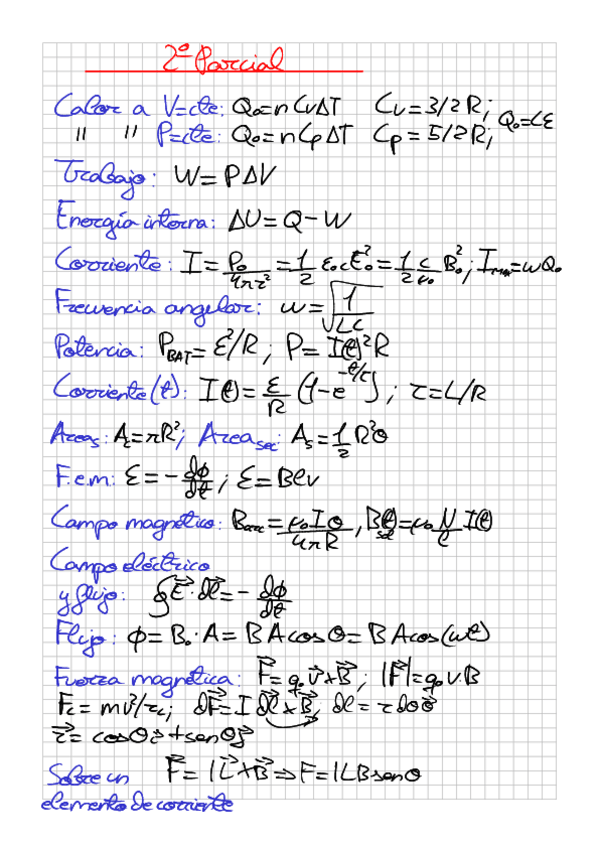 2º Parcial
Calor a V=cte: Q₀=n CᵥΔT Cᵥ=3/2 R; Q₀=Cε
" " P=cte: Q₀=n CpΔT Cp=5/2 R;
Trabajo: W=PΔV
Energía interna: ΔU=Q-W
Corriente: I=P₀/4πr²=1/2 ε₀cE₀²=1/2 c/μ₀ B₀²; Imax=ωQ₀
Frecuencia angular: ω=√(1/LC)
Potencia: P_BAT=ε²/R; P=I(t)²R
Corriente(t): I(t)=ε/R (1-e^(-t/τ)); τ=L/R
Areas: Ac=πR²; Area sec: As=1/2 R²θ
F.e.m: ε=-dϕ/dt; ε=Bℓv
Campo magnético: Barc=μ₀Iθ/4πR, B(t)sol=μ₀ N/ℓ I(t)
Campo eléctrico
y flujo: ∮E⃗·dl⃗=-dϕ/dt
Flujo: ϕ=B₀·A=BAcosθ=BAcos(ωt)
Fuerza magnética: F⃗=q₀v⃗×B⃗; |F⃗|=q₀v·B
Fc=mv²/rc; dF⃗=I dl⃗×B⃗, dl=r dθ
r⃗=cosθi⃗+senθj⃗
Sobre un F⃗=IL⃗×B⃗⇒F=ILBsenθ
elemento de corriente